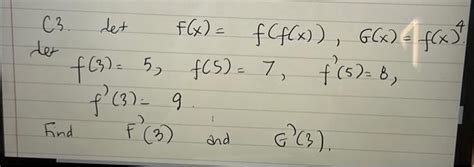 C3. let F(x) = f(f(x)), G(x) = f(x)^4
let
f(3) = 5, f(5) = 7, f'(5) = 8,
f'(3) = 9.
Find F'(3) and G'(3).